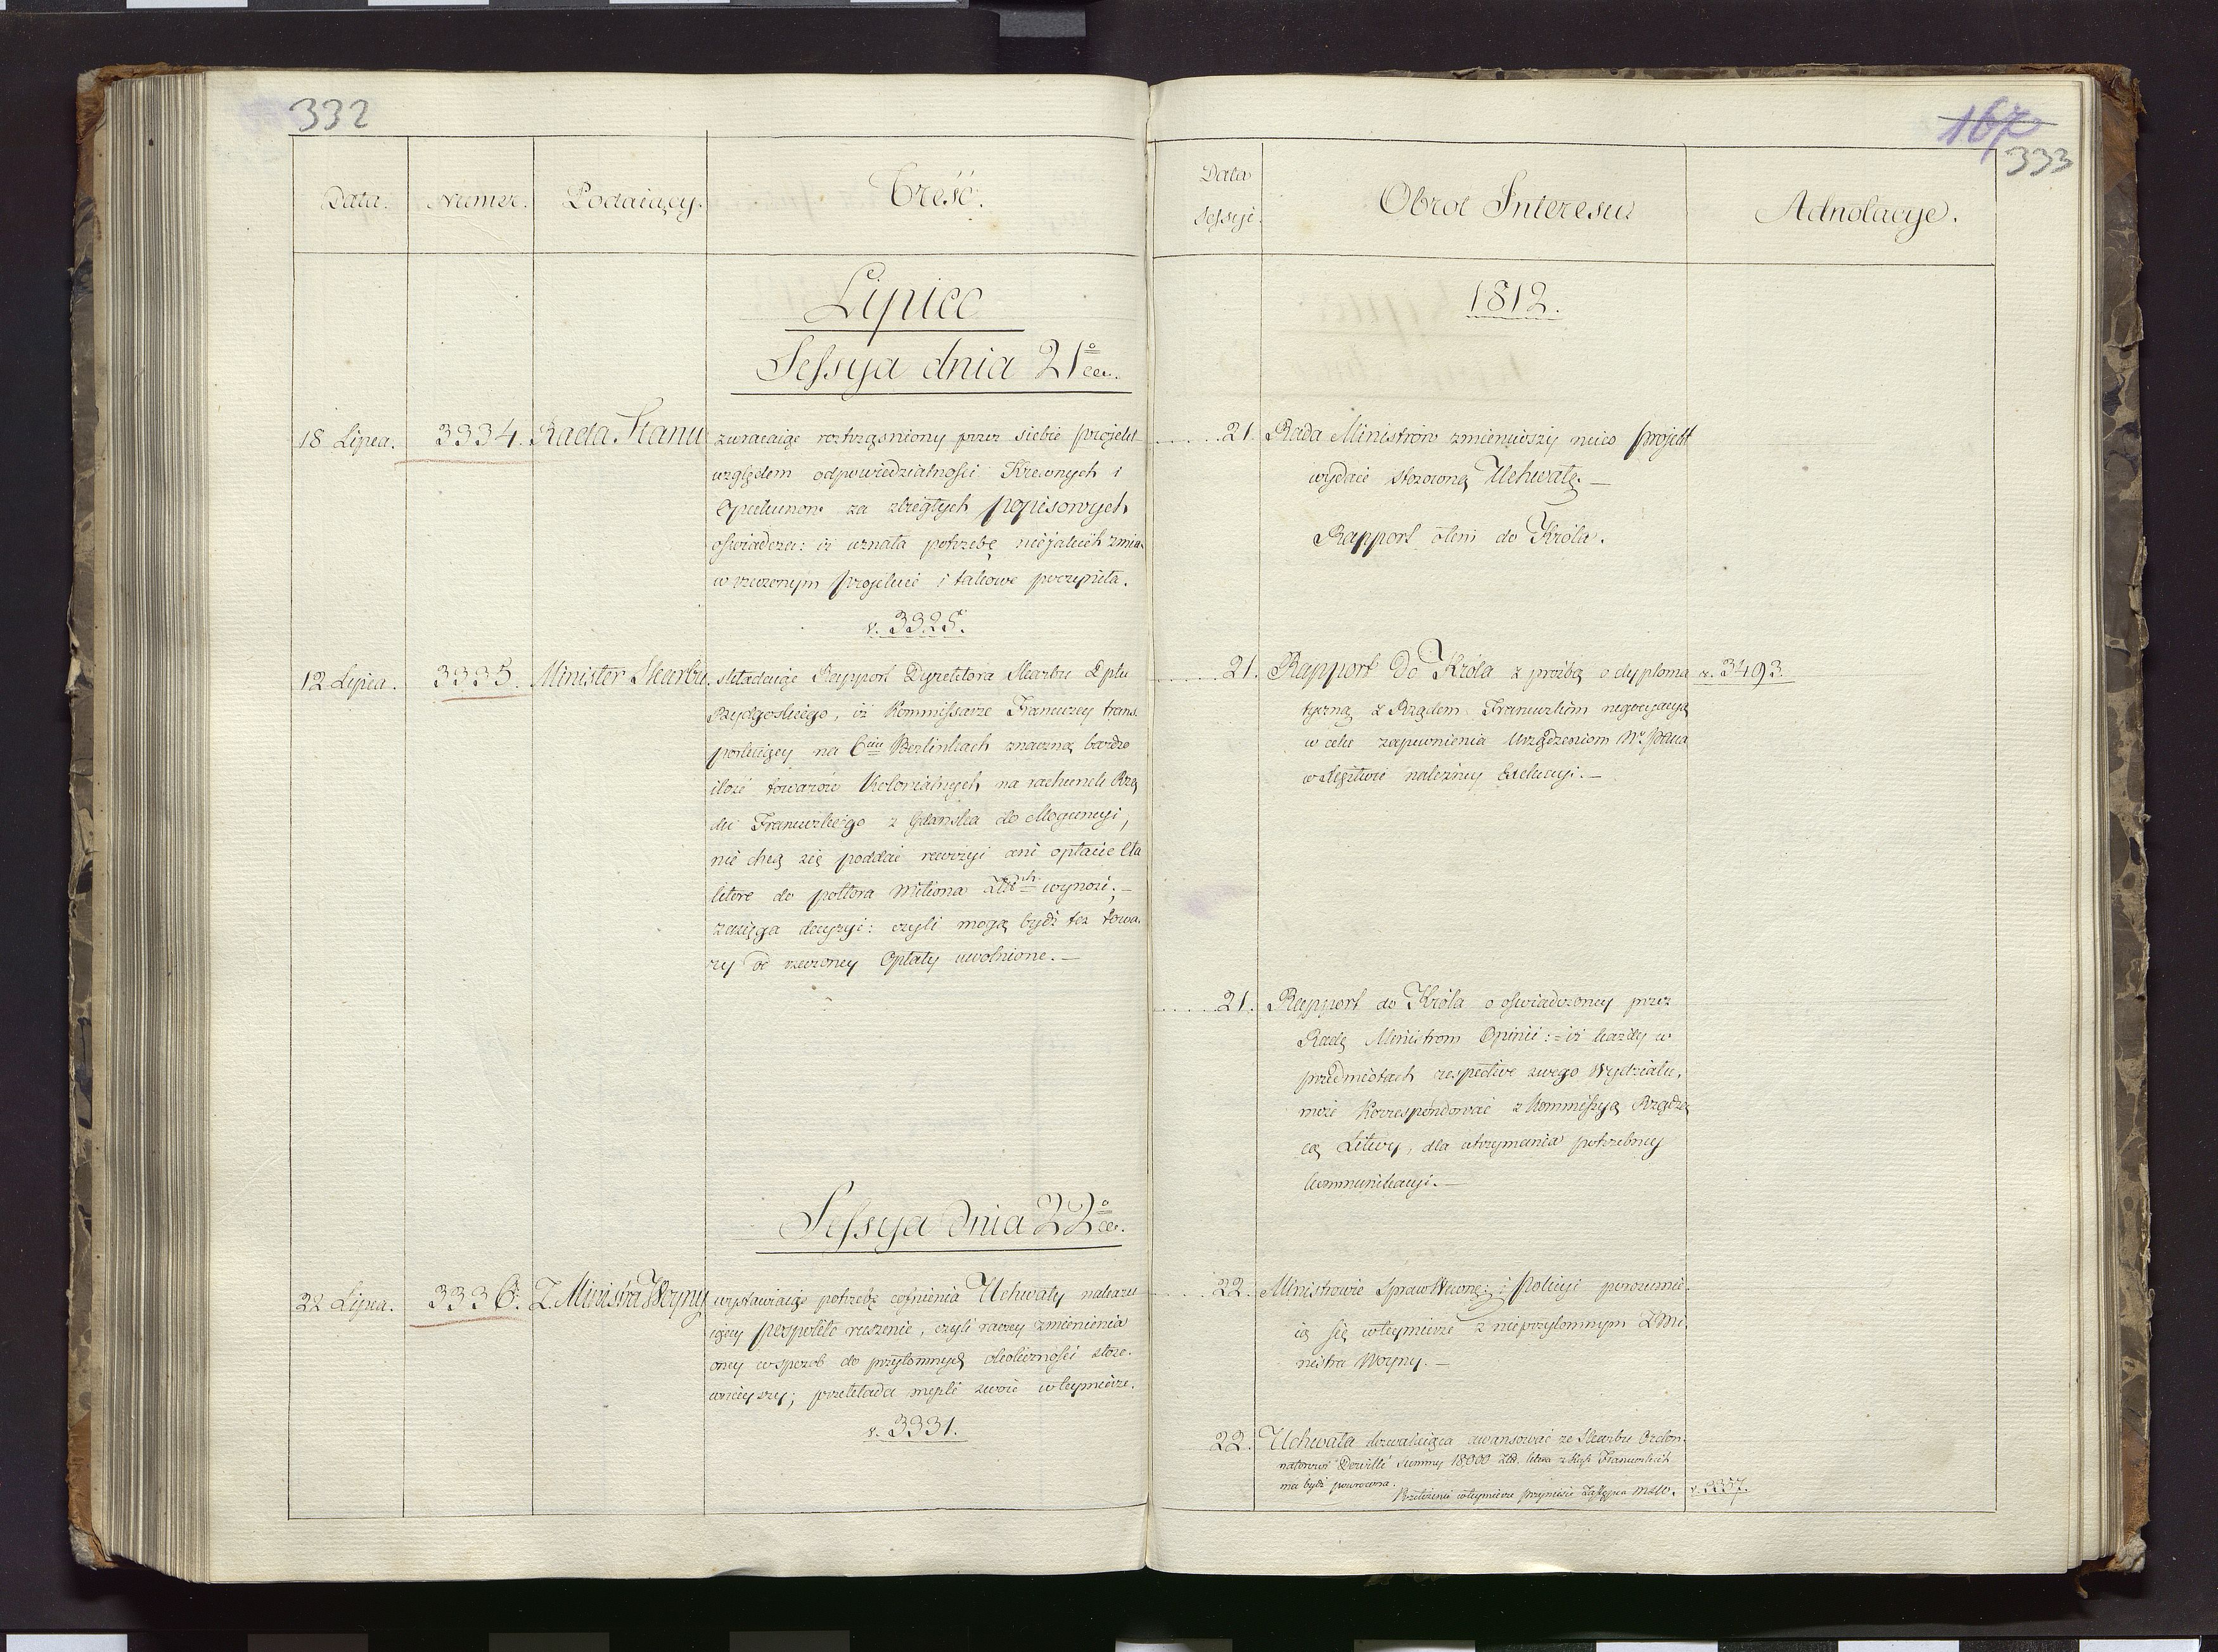 332
Data.
Numer.
Podaiący.
Treść.
Lipiec
Sessya dnia 21º ca.
18 Lipca.
3334.
Rada Stanu
zwracaiąc roztrząsniony przez siebie projekt
względem odpowiedzialności Krewnych i
Opiekunow za zbiegłych popisowych
oświadcza: iż uznała potrzebę niejakich zmian
w rzeczonym projekcie i takowe poczyniła.
v. 3325.
12 Lipca.
3335.
Minister Skarbu
składaiąc Rapport Dyrektora Skarbu Dptu
Bydgoskiego, iż Kommissarze Francuzcy trans-
portuiący na 6ciu Berlinkach znaczną bardzo
ilość towarów Kolonialnych na rachunek Rzą
du Francuzkiego z Gdańska do Moguncyi,
nie chcą się poddać rewizyi ani opłacie Cła
które do połtora Miliona Złłch wynosi;—
zasięga decyzyi: czyli mogą bydź też towa-
ry od rzeczoney Opłaty uwolnione.—
Sessya dnia 22º ca.
22 Lipca.
3336.
Z. Ministra Woyny
wystawiaiąc potrzebę cofnienia Uchwały nakazu
iącey pospolite ruszenie, czyli raczey zmienienia
oney w sposób do przytomnych okoliczności stoso-
wnieyszy; przekłada myśli swoie w teymierze.
v. 3331.
167
333
Data
Sessyi.
Obrot Interesu
Adnotacye.
1812.
21.
Rada Ministrów zmieniwszy nieco projekt
wydaie stosowną Uchwałę.—
Rapport o tem do Króla.
21.
Rapport Do Króla z prośbą o dyploma
tyczną z Rządem Francuzkim negocyacyą
w celu zapewnienia Urządzeniom Nr. Pana
w Xięztwie należney Exekucyi.—
v. 3493.
21.
Rapport do Króla o oświadczoney przez
Radę Ministrom Opinii:= iż każdy w
przedmiotach respective swego Wydziału,
może Korrespondować z Kommissyą Rządzą
cą Litwy, dla utrzymania potrzebney
kommunikacyi.—
22.
Ministrowie Spraw Wewnę: i Policyi porozumie-
ią się w teymierze z nieprzytomnym Z Mi-
nistra Woyny.—
22.
Uchwała dozwalaiąca awansować ze Skarbu Ordon-
natorowi Deville Summy 18000 Złł. która z Kass Francuzkich
ma bydź powrócona.
Przełożenie w teymierze przyniesie Zastępca MSW.
v. 3357.